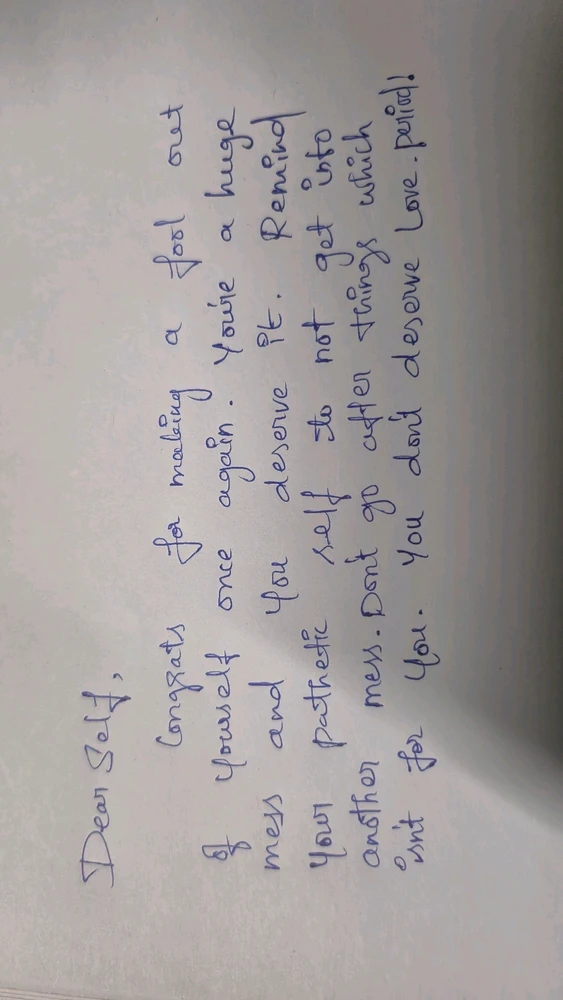 Dear Self,
Congrats for making a fool out
of yourself once again. You're a huge
mess and you deserve it. Remind
your pathetic self to not get into
another mess. Don't go after things which
isn't for you. You don't deserve love. period!